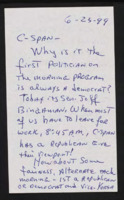 6-25-99
C-SPAN-
Why is it the
first politician on
the morning program
is always a democrat?
Today its Sen. Jeff
Bingaman. When most
of us have to leave for
work, 8:45 AM, C-SPAN
has a Republican give
this viewpoint!
How about some
fairness, alternate each
morning - 1st a Republican
or democrat and vice-versa